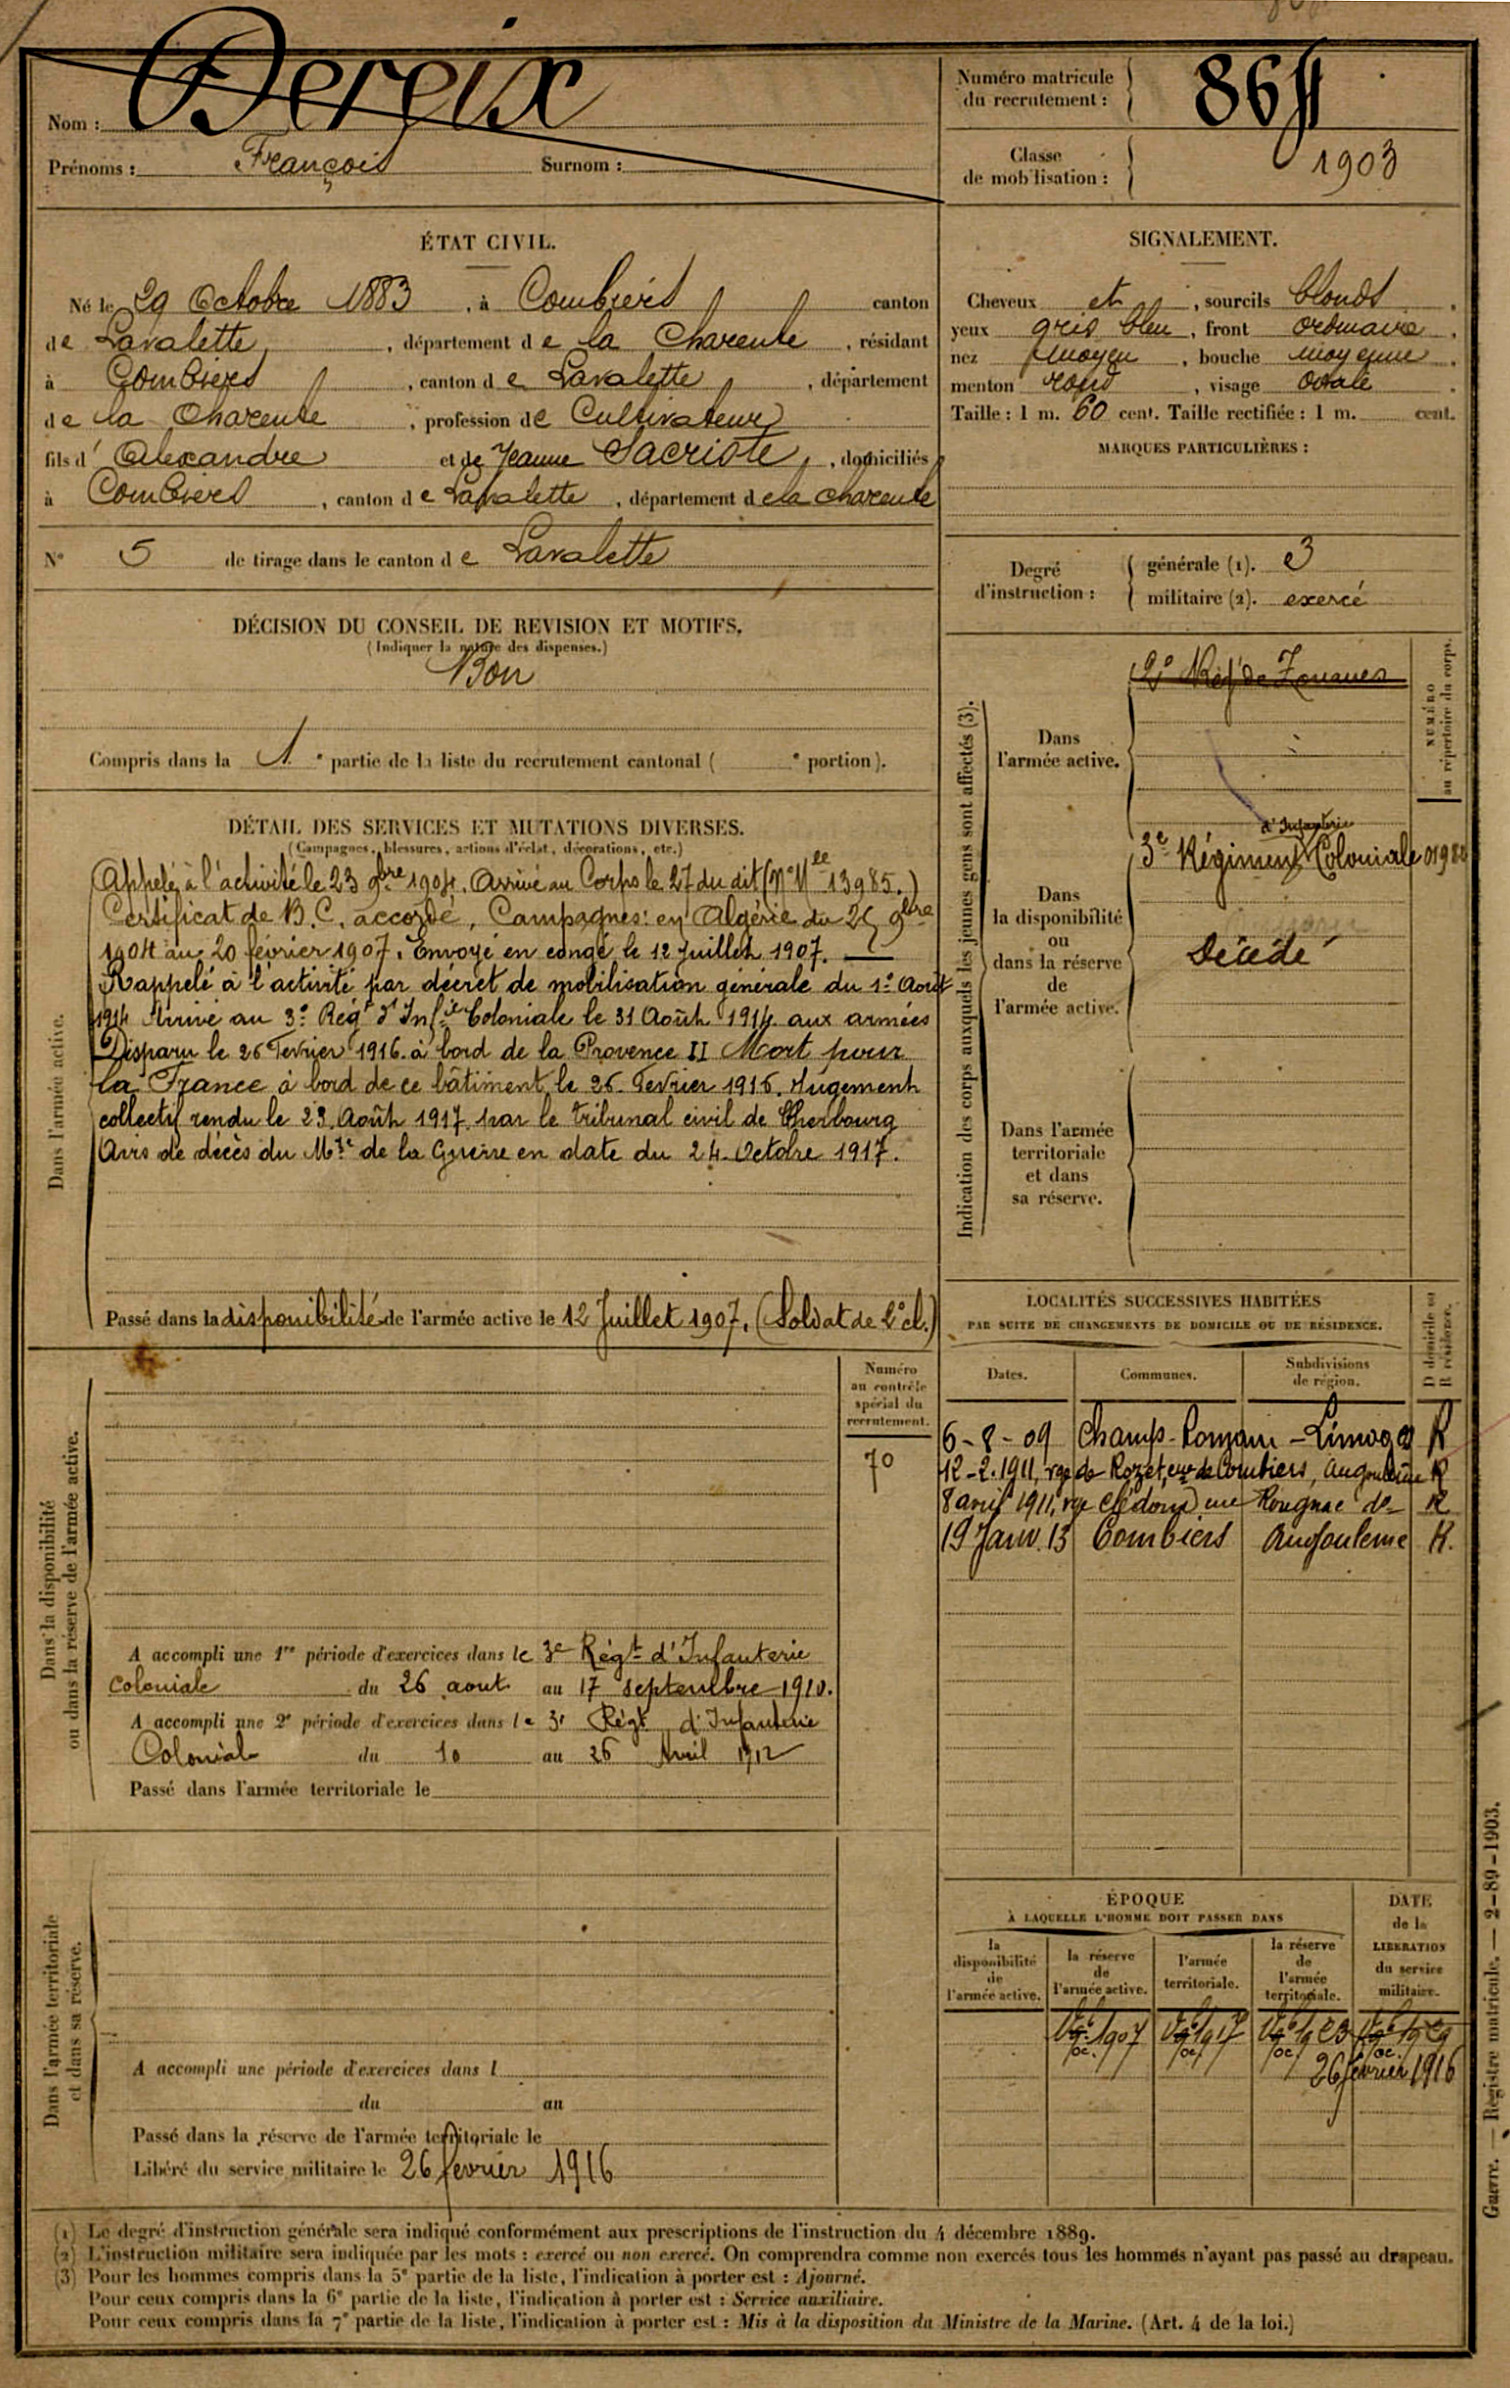 Nom : Dereix
Prénoms : François Surnom :
Numéro matricule
du recrutement : 864
Classe
de mobilisation : 1903
ÉTAT CIVIL.
Né le 29 Octobre 1883, à Combiers canton
de Lavalette, département de la Charente, résidant
à Combiers, canton de Lavalette, département
de la Charente, profession de Cultivateur
fils d'Alexandre et de Jeanne Sacriste, domiciliés
à Combiers, canton de Lavalette, département de la Charente
N° 5 de tirage dans le canton de Lavalette
SIGNALEMENT.
Cheveux et, sourcils blonds.
yeux gris bleu, front ordinaire.
nez moyen, bouche moyenne.
menton rond, visage ovale.
Taille : 1 m. 60 cent. Taille rectifiée : 1 m. cent.
MARQUES PARTICULIÈRES :
Degré
d'instruction :
générale (1). 3
militaire (2). exercé
DÉCISION DU CONSEIL DE REVISION ET MOTIFS.
(Indiquer la nature des dispenses.)
Bon
Compris dans la 1e partie de la liste du recrutement cantonal ( e portion).
DÉTAIL DES SERVICES ET MUTATIONS DIVERSES.
(Campagnes, blessures, actions d'éclat, décorations, etc.)
Dans l'armée active.
Appelé à l'activité le 23 9bre 1904. Arrivé au Corps le 27 du dit (N° Mle 13985.)
Certificat de B.C. accordé. Campagnes: en Algérie du 25 9bre
1904 au 20 février 1907. Envoyé en congé le 12 Juillet 1907.
Rappelé à l'activité par décret de mobilisation générale du 1er Août
1914 Arrivé au 3e Régt d'Infie Coloniale le 31 Août 1914. aux armées
Disparu le 26 Février 1916. à bord de la Provence II Mort pour
la France à bord de ce bâtiment le 26 Février 1916. Jugement
collectif rendu le 23. Août 1917. par le tribunal civil de Cherbourg
Avis de décès du Mre de la Guerre en date du 24. Octobre 1917.
Passé dans la disponibilité de l'armée active le 12 Juillet 1907. (Soldat de 2e cl.)
Indication des corps auxquels les jeunes gens sont affectés (3).
NUMÉRO
au répertoire du corps.
Dans
l'armée active.
2e Régt de Zouaves
Dans
la disponibilité
ou
dans la réserve
de
l'armée active.
d'Infanterie
3e Régiment Coloniale
Décédé
Dans l'armée
territoriale
et dans
sa réserve.
LOCALITÉS SUCCESSIVES HABITÉES
PAR SUITE DE CHANGEMENTS DE DOMICILE OU DE RÉSIDENCE.
Dates. Communes. Subdivisions
de région. D domicile ou
R résidence.
6-8-09 Champs-Romain - Limoges R
12-2-1911, vge de Rozet, cne de Combiers, Angoulême R
8 avril 1911, vge cne Rougnac do R
19 Janv. 13 Combiers Angoulême R.
Dans la disponibilité
ou dans la réserve de l'armée active.
Numéro
au contrôle
spécial du
recrutement.
70
A accompli une 1re période d'exercices dans le 3e Régt d'Infanterie
coloniale du 26 aout au 17 septembre 1910.
A accompli une 2e période d'exercices dans le 3e Régt d'Infanterie
Coloniale du 10 au 26 Avril 1912
Passé dans l'armée territoriale le
Dans l'armée territoriale
et dans sa réserve.
A accompli une période d'exercices dans l
du au
Passé dans la réserve de l'armée territoriale le
Libéré du service militaire le 26 février 1916
ÉPOQUE
À LAQUELLE L'HOMME DOIT PASSER DANS
la
disponibilité
de
l'armée active.
la réserve
de
l'armée active.
l'armée
territoriale.
la réserve
de
l'armée
territoriale.
DATE
de la
LIBÉRATION
du service
militaire.
1907 1917 1923 1929
26 février 1916
(1) Le degré d'instruction générale sera indiqué conformément aux prescriptions de l'instruction du 4 décembre 1889.
(2) L'instruction militaire sera indiquée par les mots : exercé ou non exercé. On comprendra comme non exercés tous les hommes n'ayant pas passé au drapeau.
(3) Pour les hommes compris dans la 5e partie de la liste, l'indication à porter est : Ajourné.
Pour ceux compris dans la 6e partie de la liste, l'indication à porter est : Service auxiliaire.
Pour ceux compris dans la 7e partie de la liste, l'indication à porter est : Mis à la disposition du Ministre de la Marine. (Art. 4 de la loi.)
Guerre. — Registre matricule. — 2-89-1903.